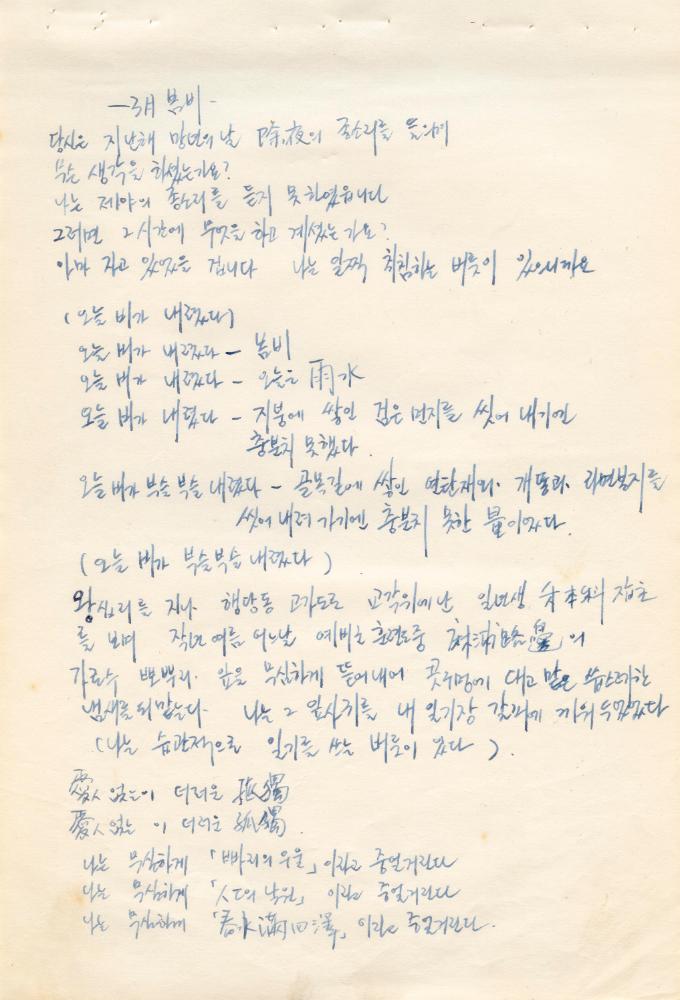 — 3月 봄비 —
당신은 지난해 망년의 날 除夜의 종소리를 들으며
무슨 생각을 하셨는가요?
나는 제야의 종소리를 듣지 못하였읍니다
그러면 그 시간에 무엇을 하고 계셨는가요?
아마 자고 있었을 겁니다 나는 일찍 취침하는 버릇이 있으니까요
(오늘 비가 내렸다)
오늘 비가 내렸다 – 봄비
오늘 비가 내렸다 – 오늘은 雨水
오늘 비가 내렸다 – 지붕에 쌓인 검은 먼지를 씻어 내기엔
충분치 못했다.
오늘 비가 부슬부슬 내렸다 – 골목길에 쌓인 연탄재와. 개똥과. 라면봉지를
씻어 내려 가기엔 충분치 못한 量이었다.
(오늘 비가 부슬부슬 내렸다)
왕십리를 지나 행당동 고가도로 교각위에 난 일년생 禾本科 잡초
를 보며 작년 여름 어느날 예비군 훈련도중 麻浦路邊의
가로수 뽀뿌라. 잎을 무심하게 뜯어내어 콧구멍에 대고 맡은 씁스레한
냄새를 되맡는다. 나는 그 잎사귀를 내 일기장 갈피에 끼워 두었었다
(나는 습관적으로 일기를 쓰는 버릇이 있다).
愛人 없는 이 더러운 孤獨
愛人 없는 이 더러운 孤獨.
나는 무심하게 「빠리의 우울」이라고 중얼거린다
나는 무심하게 「人工의 낙원」이라고 중얼거린다
나는 무심하게 「春水滿四澤」이라고 중얼거린다.